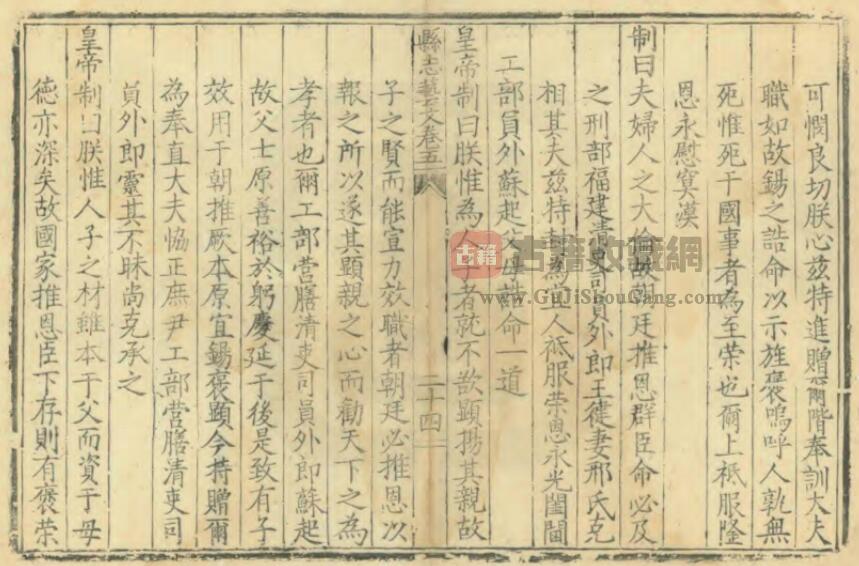 可憫良切朕心茲特進贈爾階奉訓大夫
職如故錫之誥命以示旌褒嗚呼人孰無
死惟死于國事者為至榮也爾上祗服隆
恩永慰冥漠
制曰夫婦人之大倫故朝廷推恩群臣命必及
之刑部福建清吏司員外郎王健妻邢氏克
相其夫茲特封為宜人祗服荣恩永光閨閫
工部員外蘇起父母誥命一道
皇帝制曰朕惟為人子者孰不欲顯揚其親故
縣志藝文卷五
二十四
子之賢而能宣力效職者朝廷必推恩以
報之所以遂其顯親之心而勸天下之為
孝者也爾工部营膳清吏司員外郎蘇起
故父士原善裕於躬慶延于後是致有子
效用于朝推厥本原宜錫褒顯今特贈爾
為奉直大夫恊正庶尹工部营膳清吏司
員外郎靈其不昧尚克承之
皇帝制曰朕惟人子之材雖本于父而資于母
德亦深矣故國家推恩臣下存則有褒荣
古籍
古籍收藏網
www.GuJiShouCang.com